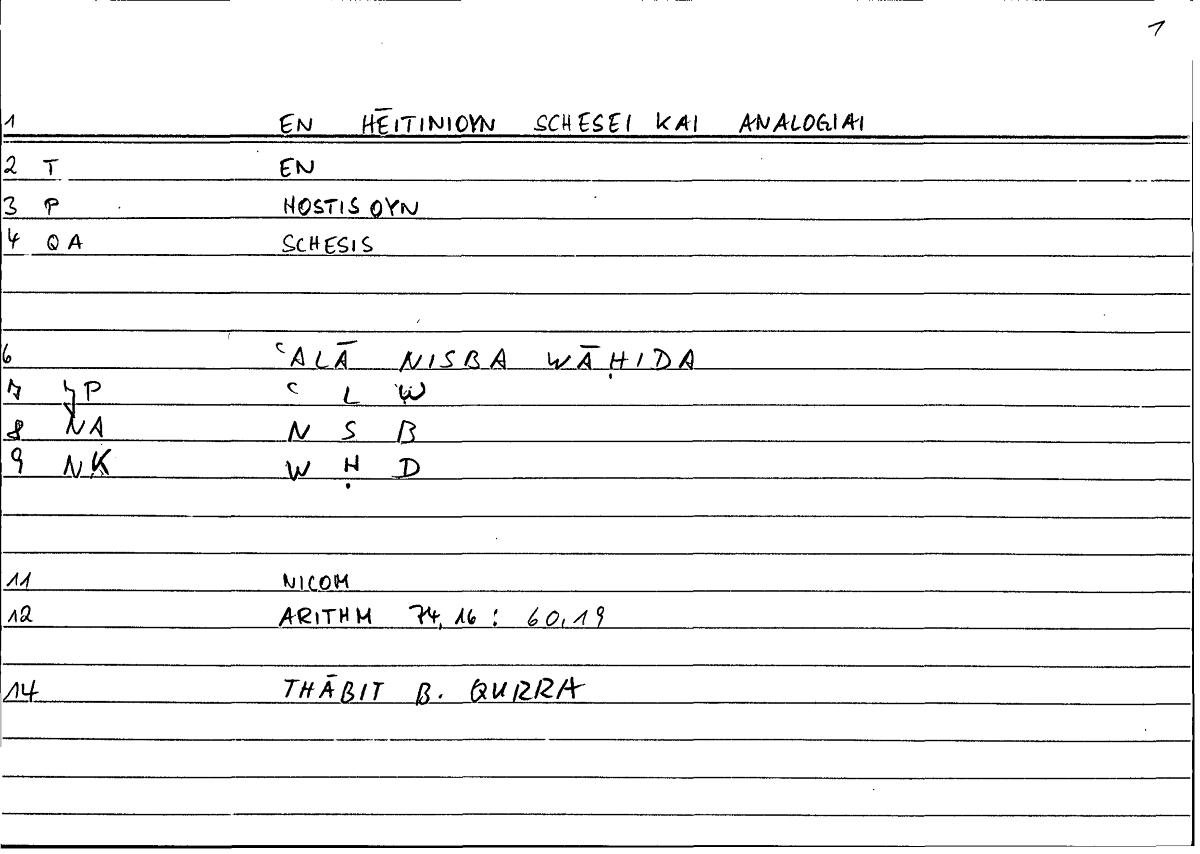 1
1 EN HĒITINIOYN SCHESEI KAI ANALOGIAI
2 T EN
3 P HOSTISOYN
4 QA SCHESIS
6 ʿALĀ NISBA WĀḤIDA
7 P ʿ L W
8 NA N S B
9 NK W Ḥ D
11 NICOM
12 ARITHM 74,16 : 60,19
14 THĀBIT B. QURRA